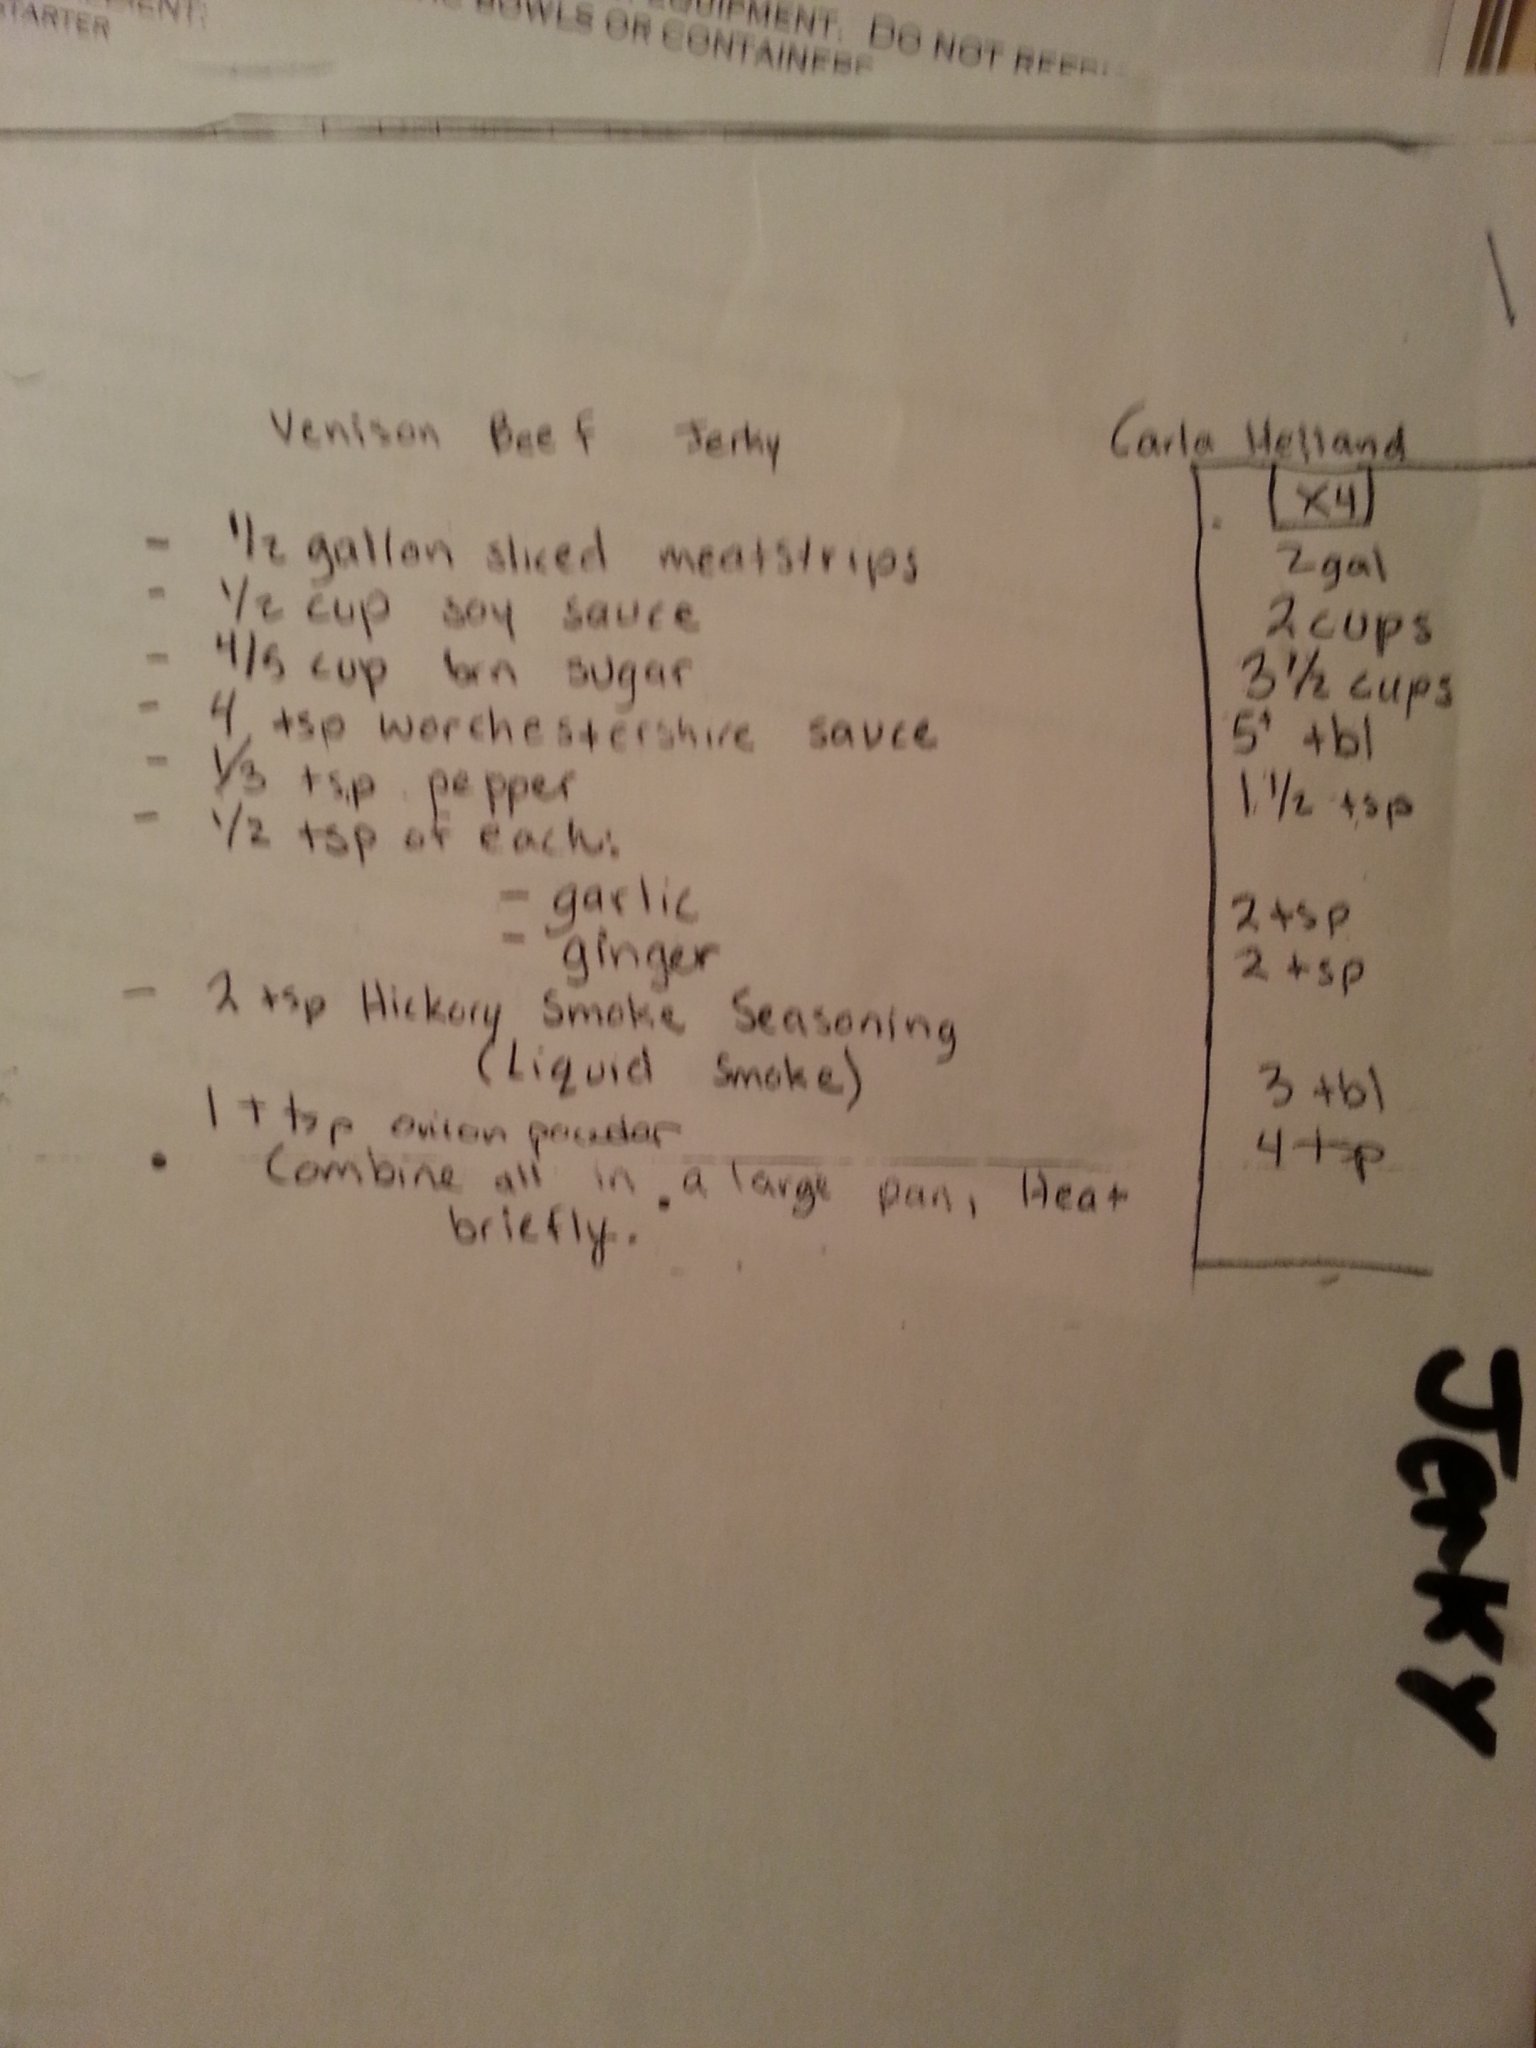 STARTER
EQUIPMENT. DO NOT
BOWLS OR CONTAINERS
Venison Beef Jerky Carla Helland
X4
- 1/2 gallon sliced meatstrips 2 gal
- 1/2 cup soy sauce 2 cups
- 4/5 cup brn sugar 3 1/2 cups
- 4 tsp worchestershire sauce 5+ tbl
- 1/3 tsp pepper 1 1/2 tsp
- 1/2 tsp of each:
- garlic 2 tsp
- ginger 2 tsp
- 2 tsp Hickory Smoke Seasoning
(Liquid Smoke) 3 tbl
1 + tsp onion powder 4 tsp
• Combine all in a large pan, Heat
briefly.
Jerky